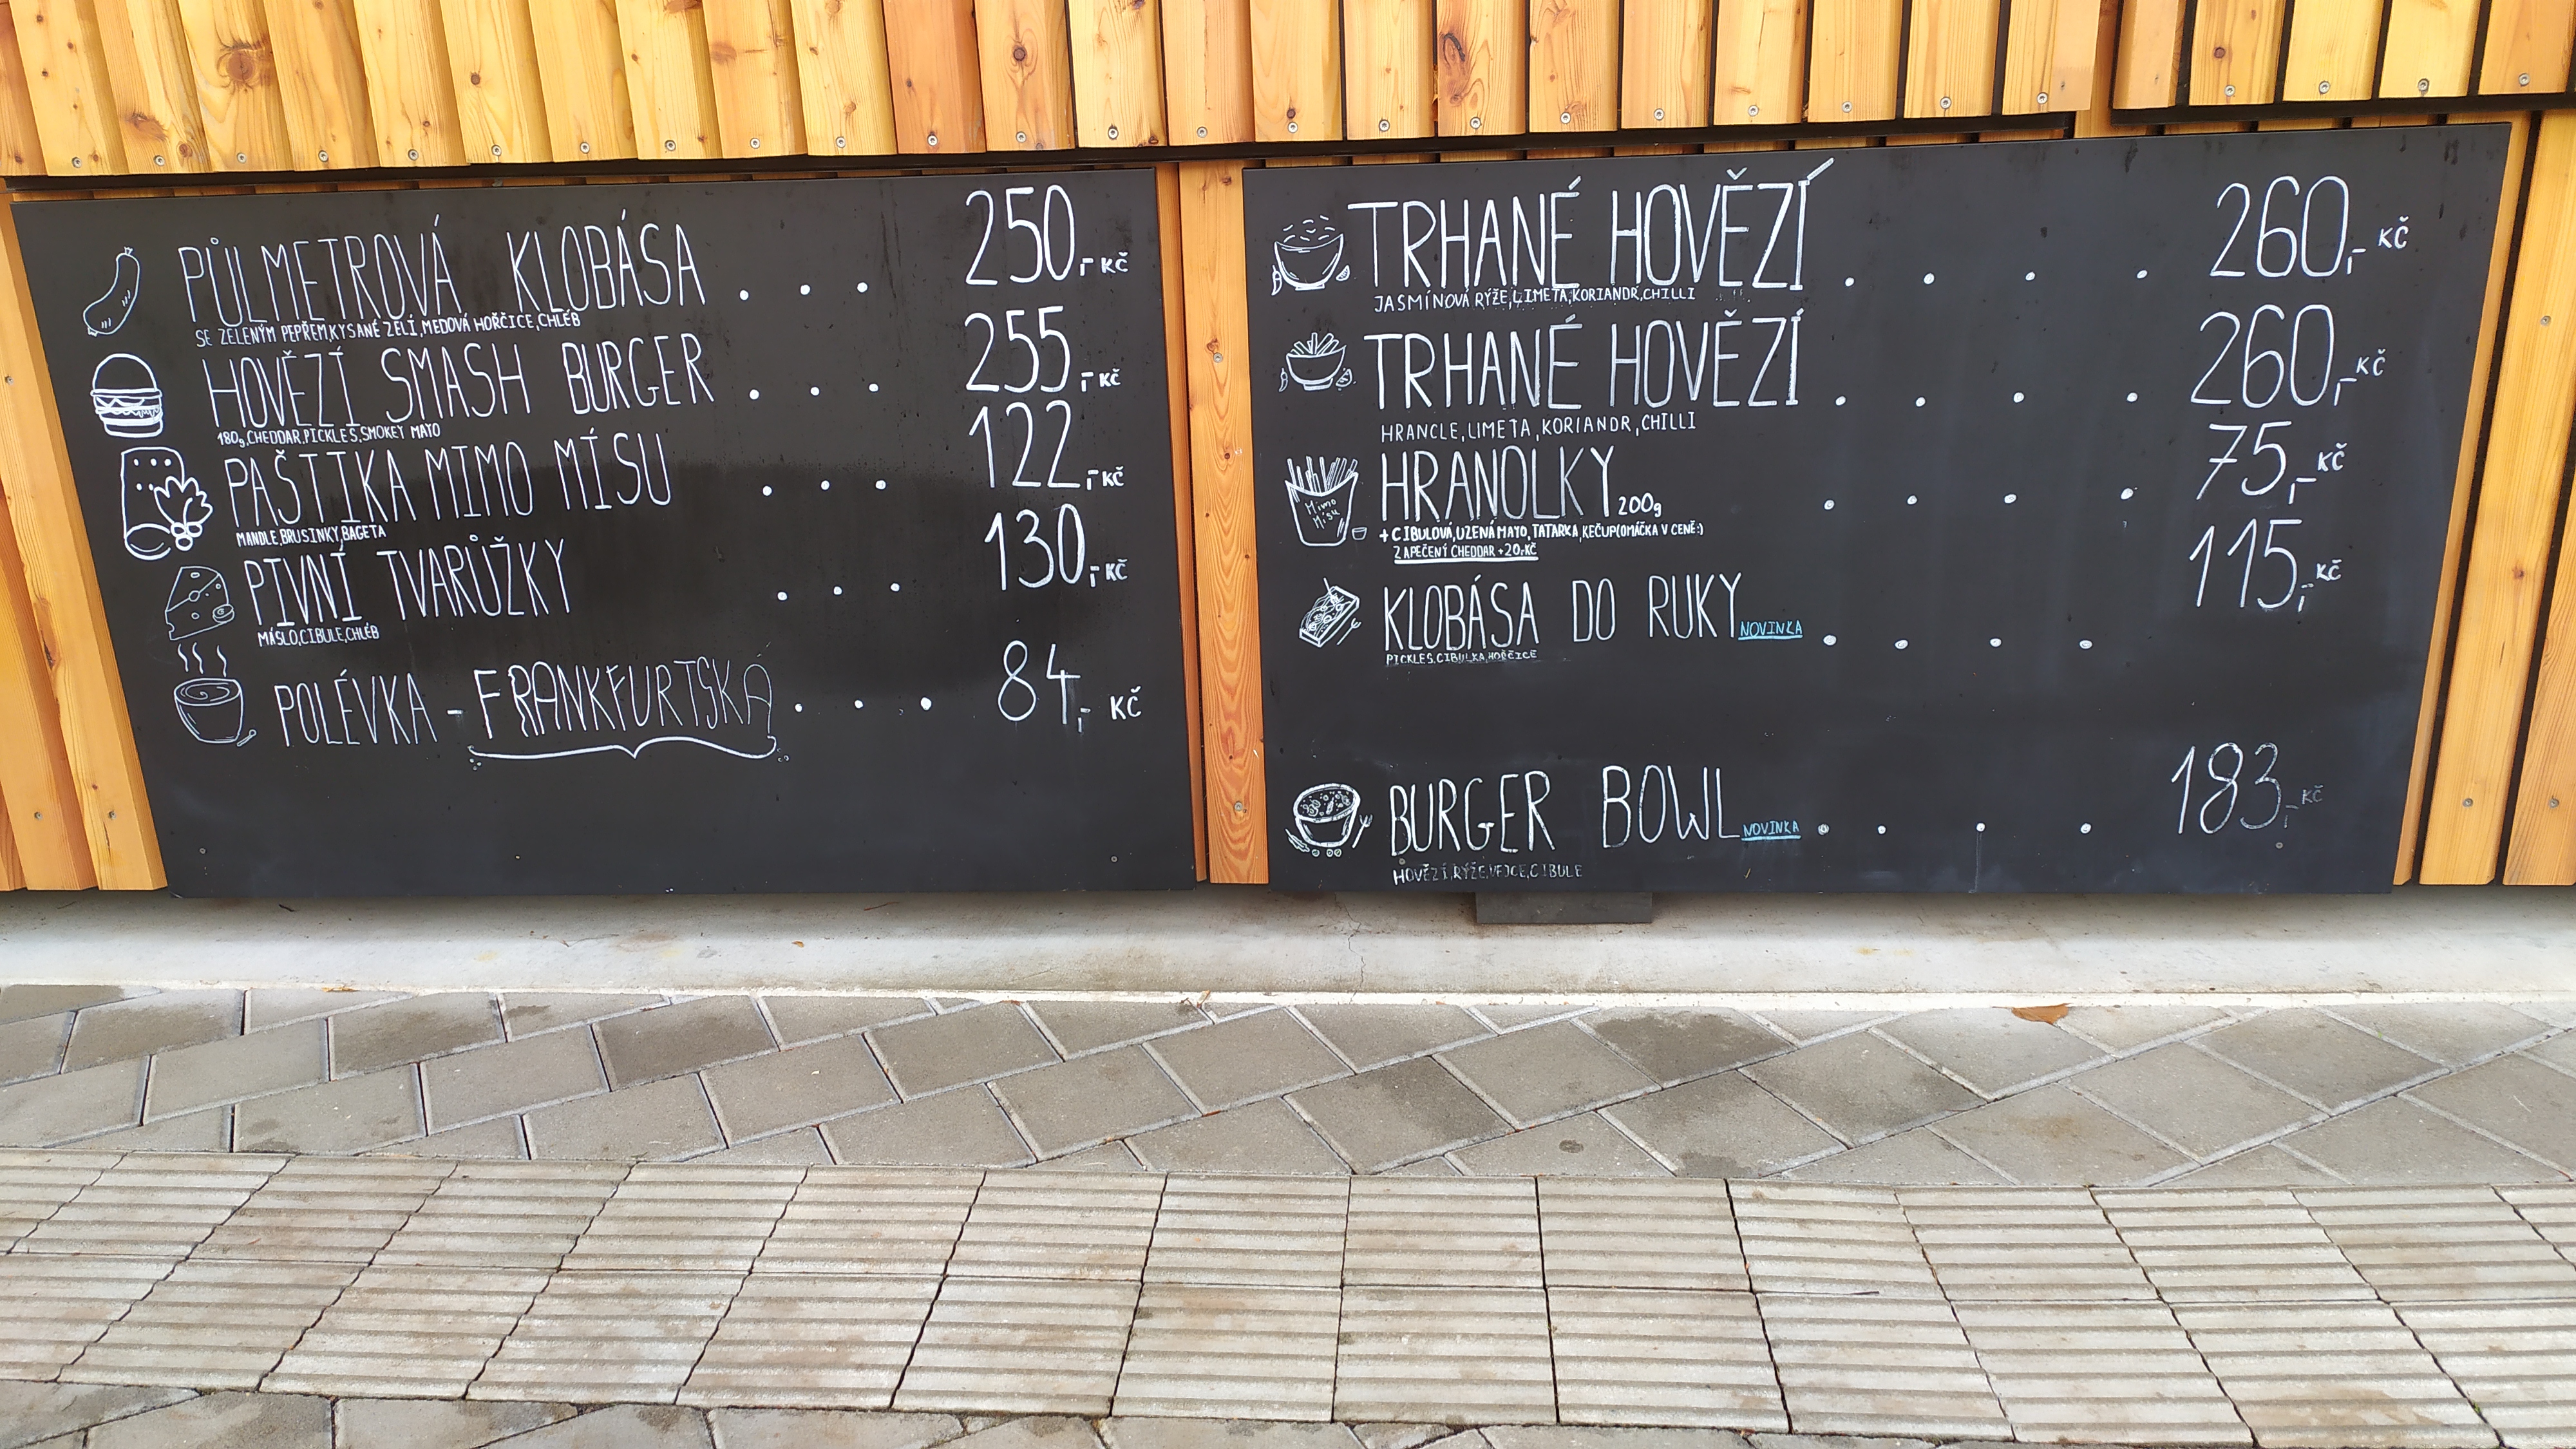 PŮLMETROVÁ KLOBÁSA . . . 250,- KČ
SE ZELENÝM PEPŘEM,KYSANÉ ZELÍ,MEDOVÁ HOŘČICE,CHLÉB
HOVĚZÍ SMASH BURGER . . . 255,- KČ
180g,CHEDDAR,PICKLES,SMOKEY MAYO
PAŠTIKA MIMO MÍSU . . . 122,- KČ
MANDLE,BRUSINKY,BAGETA
PIVNÍ TVARŮŽKY . . . 130,- KČ
MÁSLO,CIBULE,CHLÉB
POLÉVKA - FRANKFURTSKÁ . . . 84,- KČ
TRHANÉ HOVĚZÍ . . . . 260,- KČ
JASMÍNOVÁ RÝŽE,LIMETA,KORIANDR,CHILLI
TRHANÉ HOVĚZÍ . . . . 260,- KČ
HRANCLE,LIMETA,KORIANDR,CHILLI
HRANOLKY 200g . . . . 75,- KČ
Mimo
Mísu
+ CIBULOVÁ,UZENÁ MAYO,TATARKA,KEČUP(OMÁČKA V CENĚ:)
ZAPEČENÝ CHEDDAR +20,-KČ
KLOBÁSA DO RUKY NOVINKA . . . . 115,- KČ
PICKLES,CIBULKA,HOŘČICE
BURGER BOWL NOVINKA . . . . 183,- KČ
HOVĚZÍ,RÝŽE,VEJCE,CIBULE